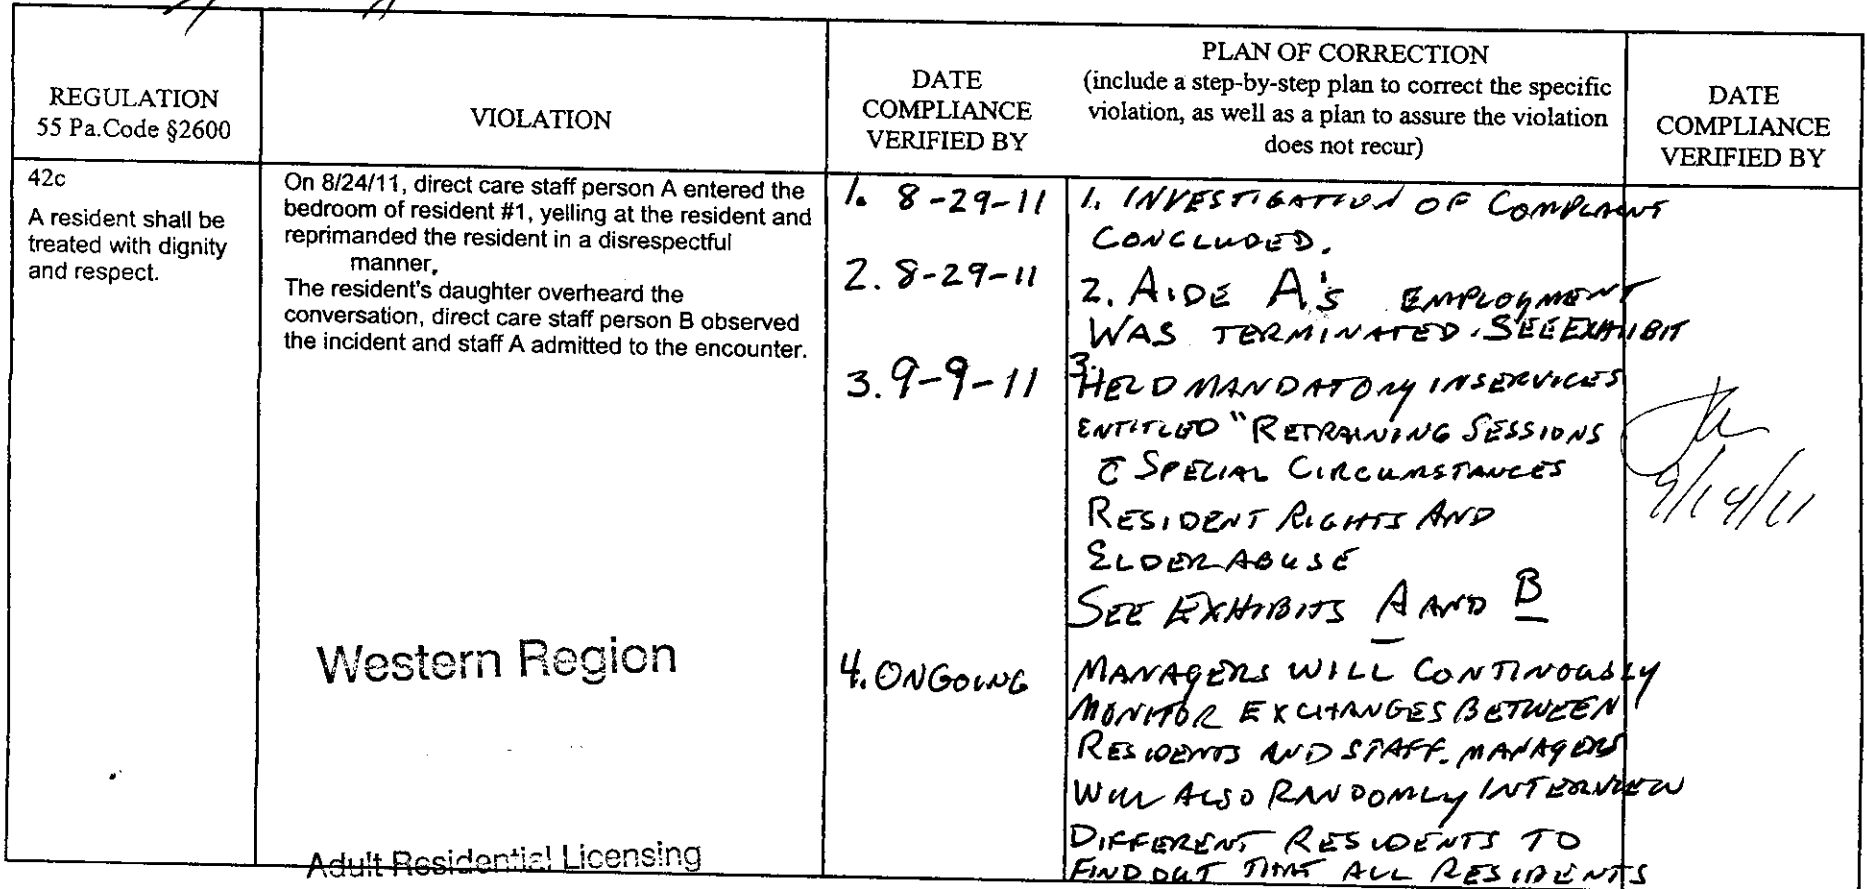 REGULATION
55 Pa.Code §2600
VIOLATION
DATE
COMPLIANCE
VERIFIED BY
PLAN OF CORRECTION
(include a step-by-step plan to correct the specific
violation, as well as a plan to assure the violation
does not recur)
DATE
COMPLIANCE
VERIFIED BY
42c
A resident shall be
treated with dignity
and respect.
On 8/24/11, direct care staff person A entered the
bedroom of resident #1, yelling at the resident and
reprimanded the resident in a disrespectful
manner,
The resident's daughter overheard the
conversation, direct care staff person B observed
the incident and staff A admitted to the encounter.
Western Region
Adult Residential Licensing
1. 8-29-11
2. 8-29-11
3. 9-9-11
4. ONGOING
1. INVESTIGATION OF COMPLAINT
CONCLUDED.
2. AIDE A's EMPLOYMENT
WAS TERMINATED. SEE EXHIBIT
3.
HELD MANDATORY INSERVICES
ENTITLED "RETRAINING SESSIONS
c̄ SPECIAL CIRCUMSTANCES
RESIDENT RIGHTS AND
ELDER ABUSE
SEE EXHIBITS A AND B
MANAGERS WILL CONTINOUSLY
MONITOR EXCHANGES BETWEEN
RESIDENTS AND STAFF. MANAGERS
WILL ALSO RANDOMLY INTERVIEW
DIFFERENT RESIDENTS TO
FIND OUT THAT ALL RESIDENTS
9/14/11